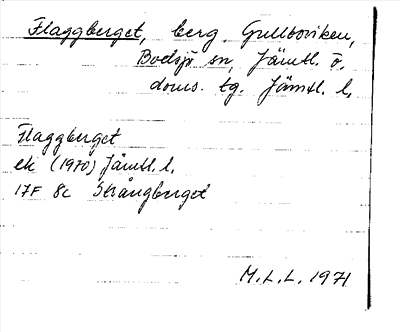 Flaggberget, berg. Gullboviken,
Bodsjö sn, Jämtl. ö.
doms. tg. Jämtl. l.
Flaggberget
ek (1970) Jämtl. l.
17F 8c Strångberget
M.L.L. 1971